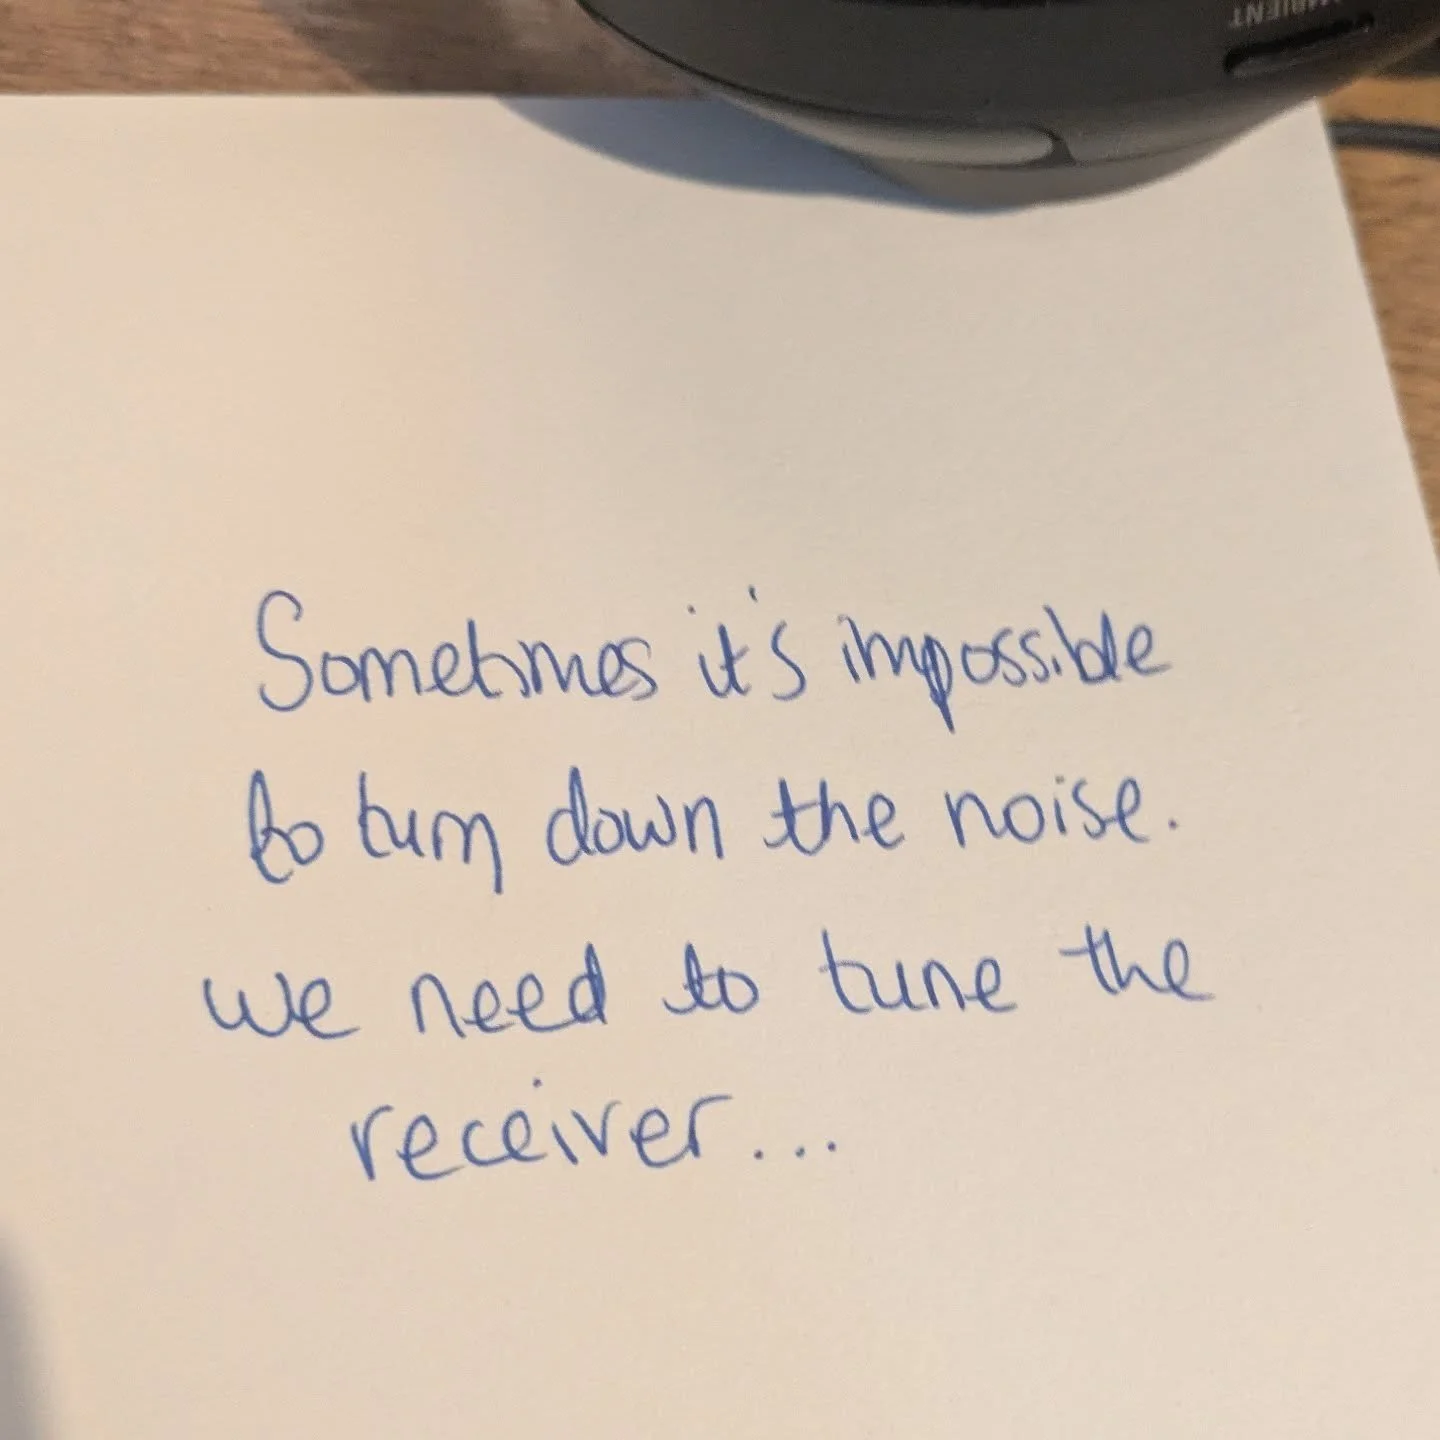 AMBIENT
Sometimes it's impossible
to turn down the noise.
we need to tune the
receiver...